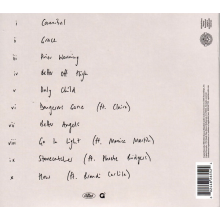 i Cannibal
ii Grace
iii Prior Warning
iv Better Off High
v Only Child
vi Dangerous Game (ft. Clairo)
vii Better Angels
viii Go In Light (ft. Monica Martin)
ix Stonecatcher (ft. Phoebe Bridgers)
x Maui (ft. Brandi Carlile)